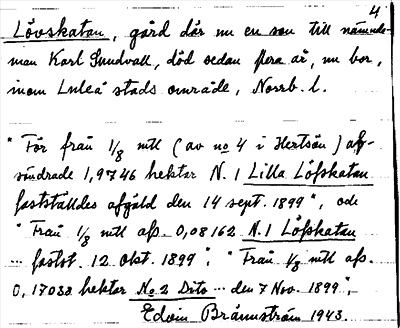 4
Lövskatan, gård där nu en son till nämnde-
man Karl Sundvall, död sedan flera år, nu bor,
inom Luleå stads område, Norrb. l.
"För från 1/8 mtl (av no 4 i Hertsön) af-
söndrade 1,9746 hektar N. 1 Lilla Löfskatan
fastställdes afgäld den 14 sept. 1899", och
"Från 1/8 mtl afs. 0,08162 N. 1 Löfskatan
... fastst. 12 okt. 1899"; "Från 1/8 mtl afs.
0,17038 hektar No 2 Dito ... den 7 Nov. 1899",
Edvin Brännström 1943.